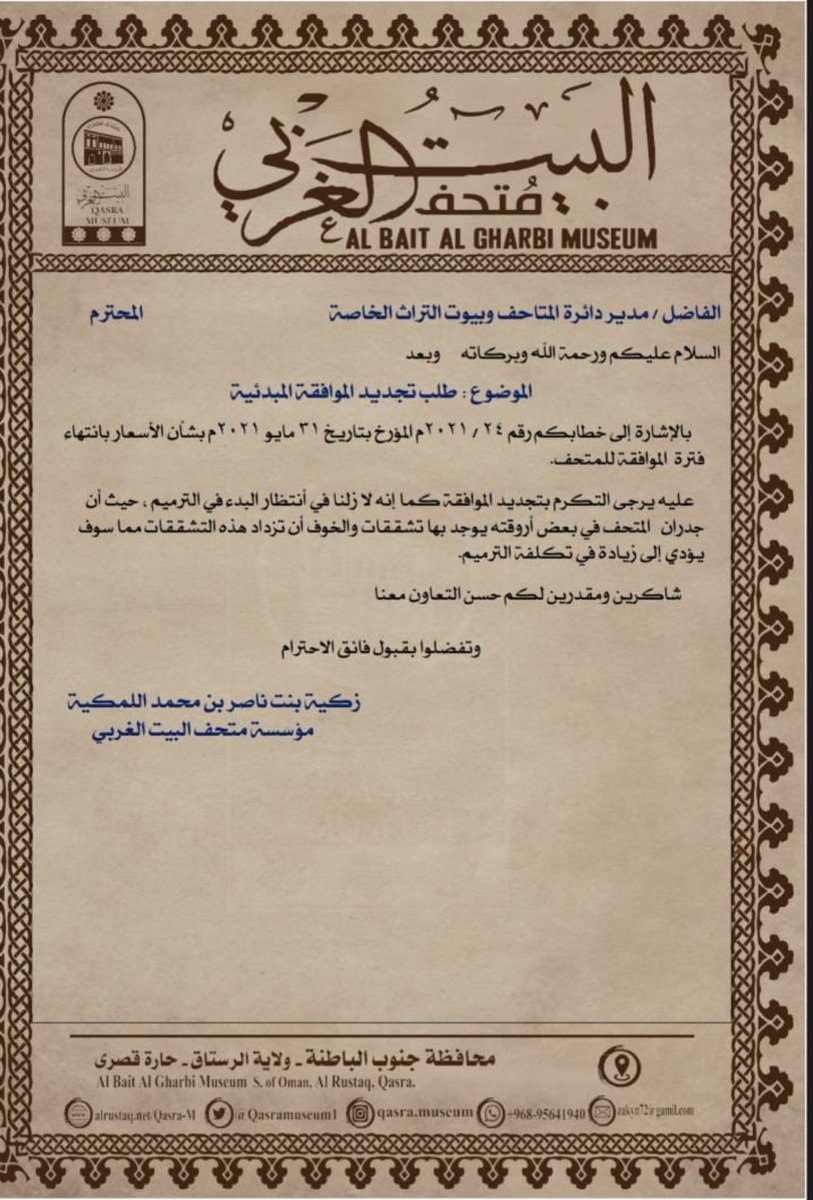 البيت الغربي
متحف
AL BAIT AL GHARBI MUSEUM
البيت الغربي
QASRA
MUSEUM
الفاضل / مدير دائرة المتاحف وبيوت التراث الخاصة المحترم
السلام عليكم ورحمة الله وبركاته وبعد
الموضوع : طلب تجديد الموافقة المبدئية
بالإشارة إلى خطابكم رقم ٢٤ / ٢٠٢١م المؤرخ بتاريخ ٣١ مايو ٢٠٢١م بشأن الأسعار بانتهاء
فترة الموافقة للمتحف.
عليه يرجى التكرم بتجديد الموافقة كما إنه لا زلنا في أنتظار البدء في الترميم ، حيث أن
جدران المتحف في بعض أروقته يوجد بها تشققات والخوف أن تزداد هذه التشققات مما سوف
يؤدي إلى زيادة في تكلفة الترميم.
شاكرين ومقدرين لكم حسن التعاون معنا
وتفضلوا بقبول فائق الاحترام
زكية بنت ناصر بن محمد اللمكية
مؤسسة متحف البيت الغربي
محافظة جنوب الباطنة - ولاية الرستاق - حارة قصرى
Al Bait Al Gharbi Museum S. of Oman, Al Rustaq, Qasra.
alrustaq.net/Qasra-M @Qasramuseum1 qasra.museum +968-95641940